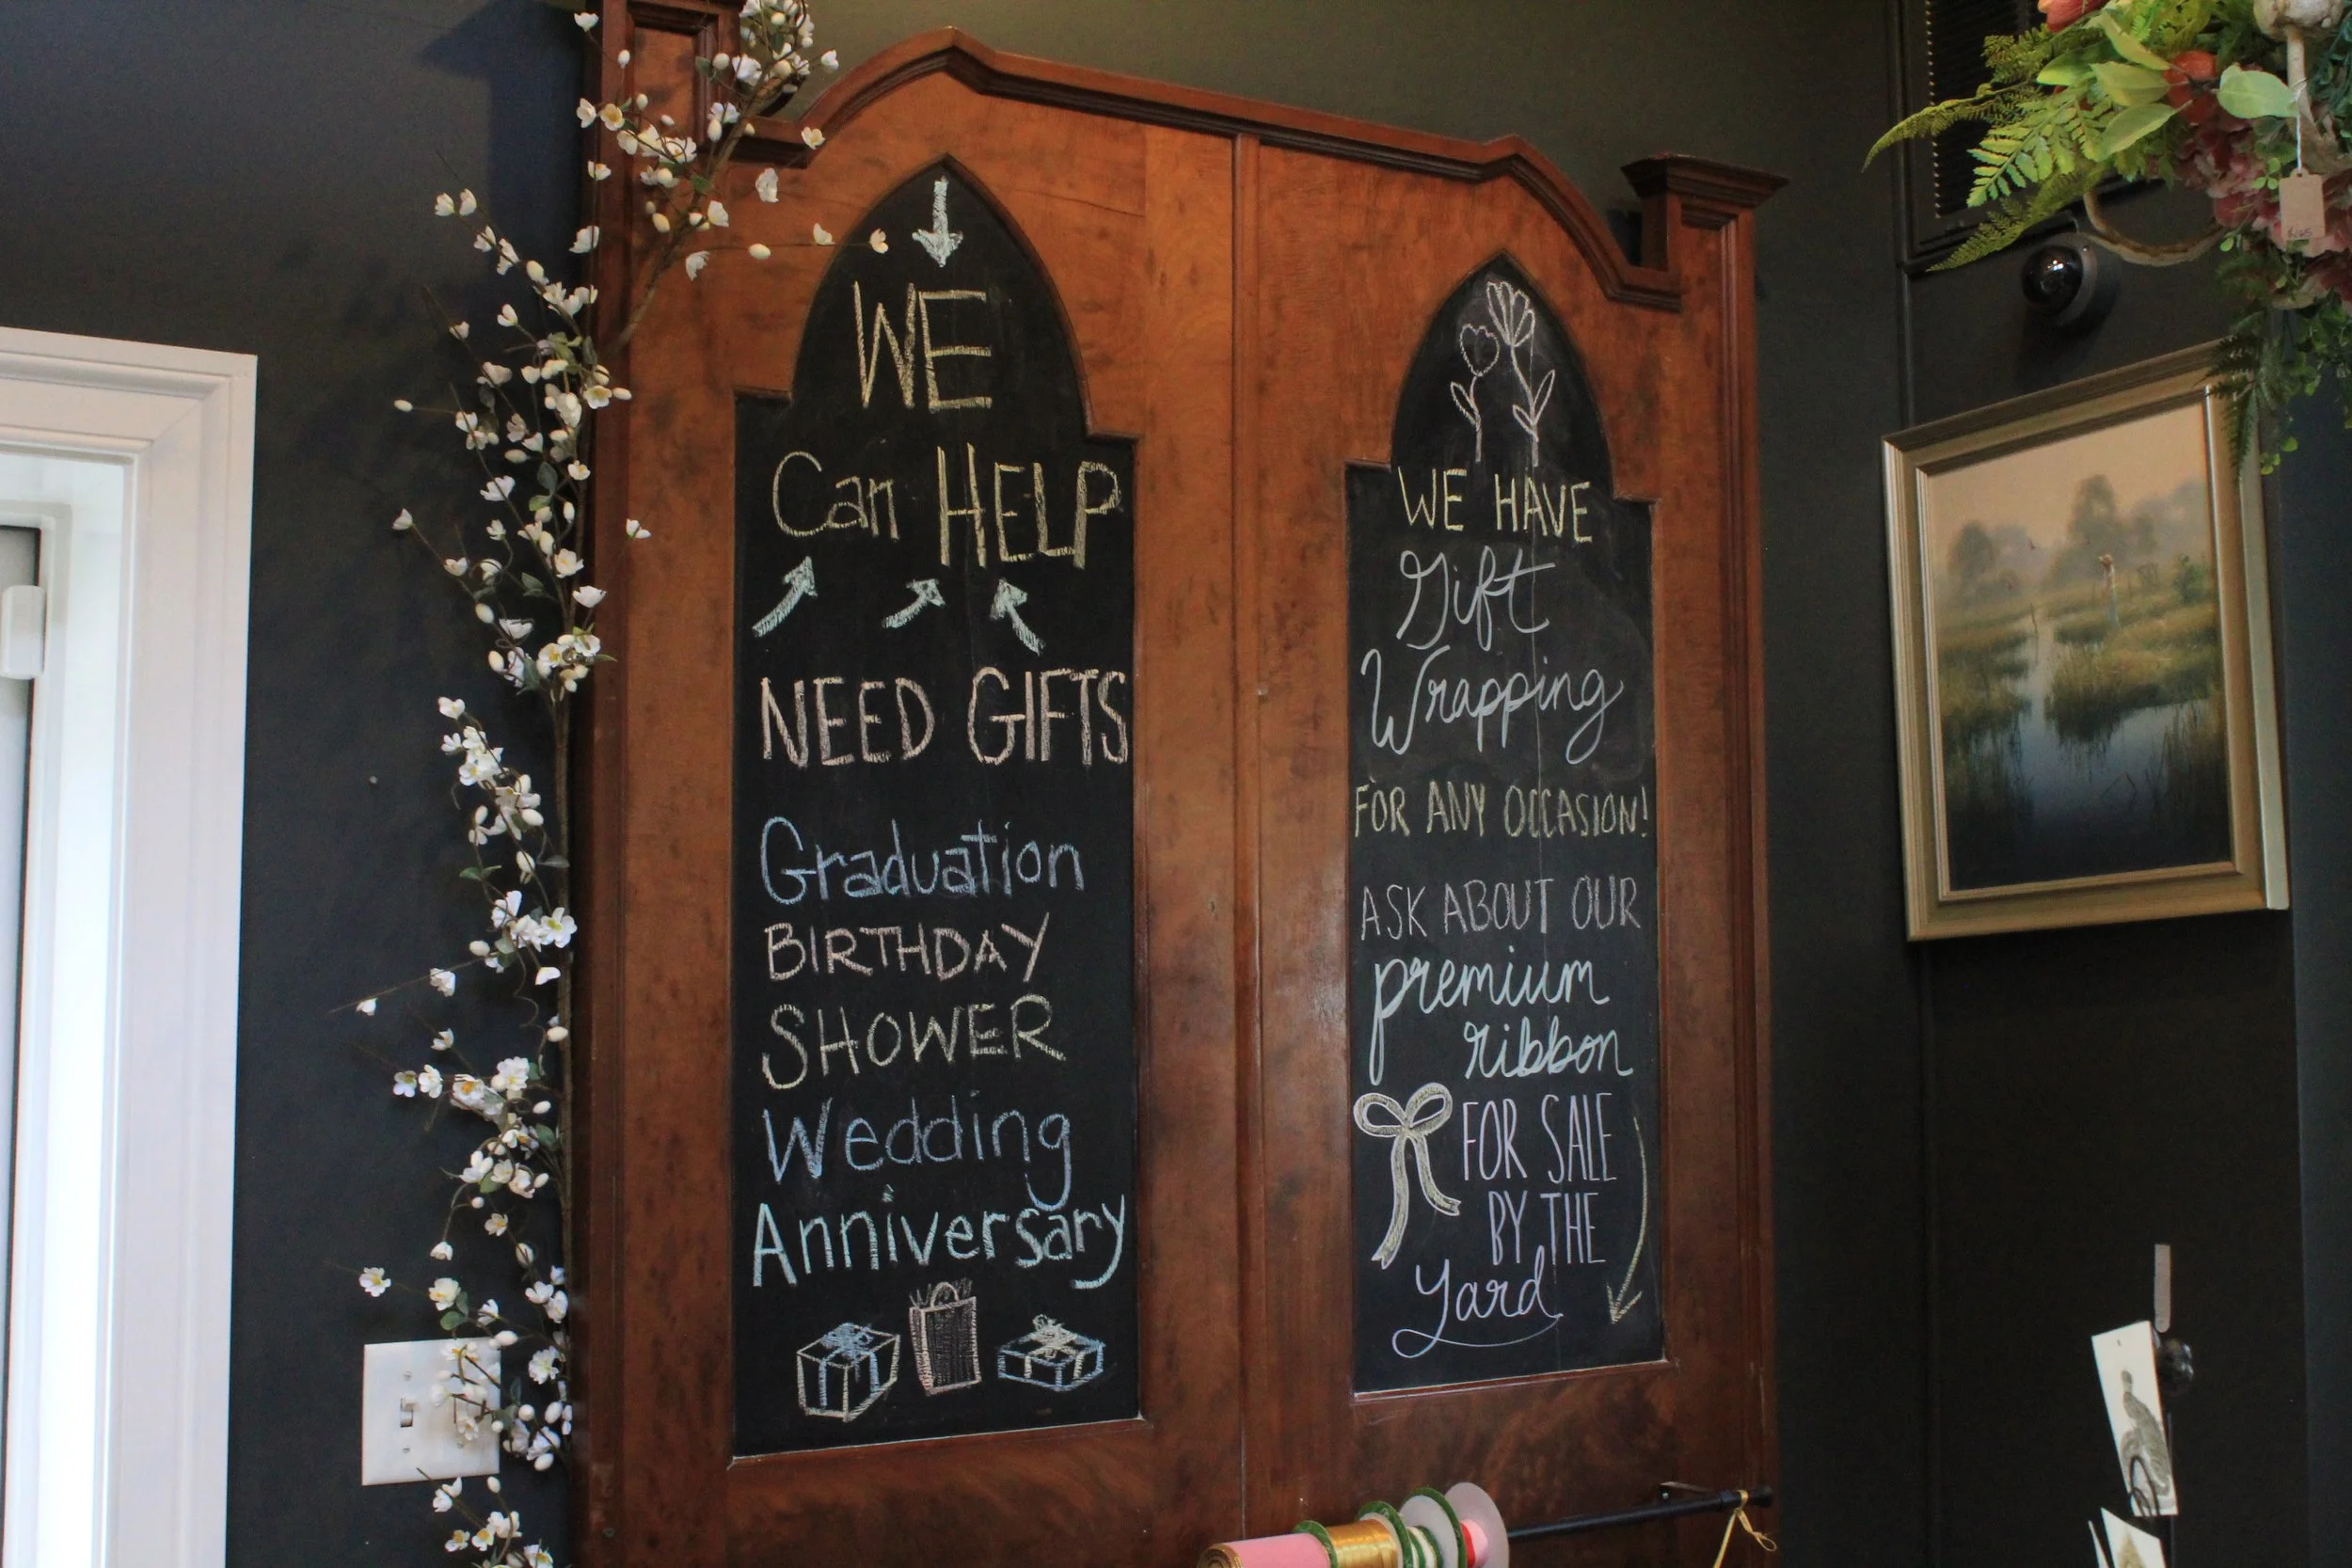 WE
Can HELP
NEED GIFTS
Graduation
BIRTHDAY
SHOWER
Wedding
Anniversary
WE HAVE
Gift
Wrapping
FOR ANY OCCASION!
ASK ABOUT OUR
premium
ribbon
FOR SALE
BY THE
Yard